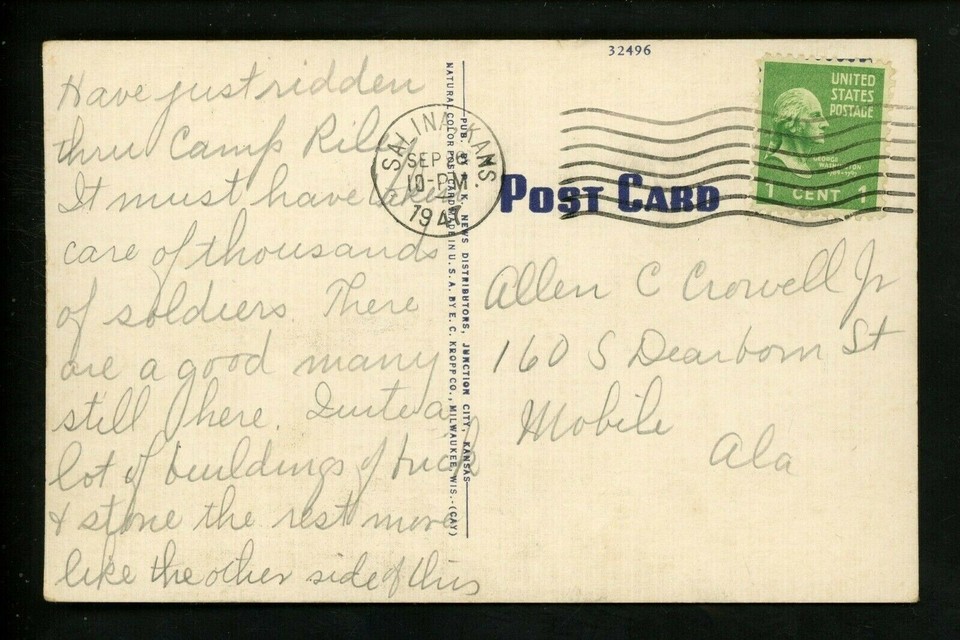 32496
UNITED
STATES
POSTAGE
GEORGE
WASHINGTON
1 CENT 1
SALINA KANS.
SEP
10-PM
194
POST CARD
PUB. BY NEWS DISTRIBUTORS, JUNCTION CITY, KANSAS
NATURAL COLOR POST CARD MADE IN U.S.A. BY E. C. KROPP CO., MILWAUKEE, WIS.-(CAY)
Have just ridden
thru Camp Riley
It must have taken
care of thousands
of soldiers. There
are a good many
still here. Quite a
lot of buildings of brick
& stone the rest more
like the other side of this
Allen C Crowell Jr
160 S Dearborn St
Mobile
Ala